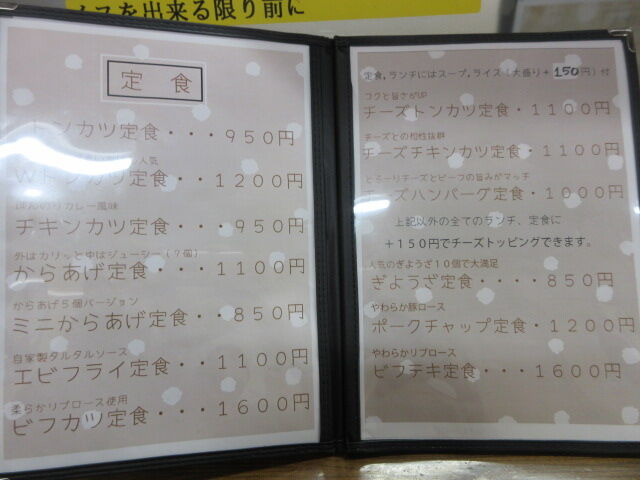 イスを出来る限り前に
定食
トンカツ定食・・・950円
人気
Wトンカツ定食・・1200円
カレー風味
チキンカツ定食・・・950円
外はカリッと中はジューシー(7個)
からあげ定食・・・1100円
からあげ5個バージョン
ミニからあげ定食・・850円
自家製タルタルソース
エビフライ定食・・・1100円
柔らかリブロース使用
ビフカツ定食・・・1600円
定食,ランチにはスープ,ライス(大盛り+150円)付
コクと旨さがUP
チーズトンカツ定食・1100円
チーズとの相性抜群
チーズチキンカツ定食・1100円
とろ〜りチーズとビーフの旨みがマッチ
チーズハンバーグ定食・1000円
上記以外の全てのランチ、定食に
+150円でチーズトッピングできます。
人気のぎょうざ10個で大満足
ぎょうざ定食・・・・850円
やわらか豚ロース
ポークチャップ定食・1200円
やわらかリブロース
ビフテキ定食・・・1600円